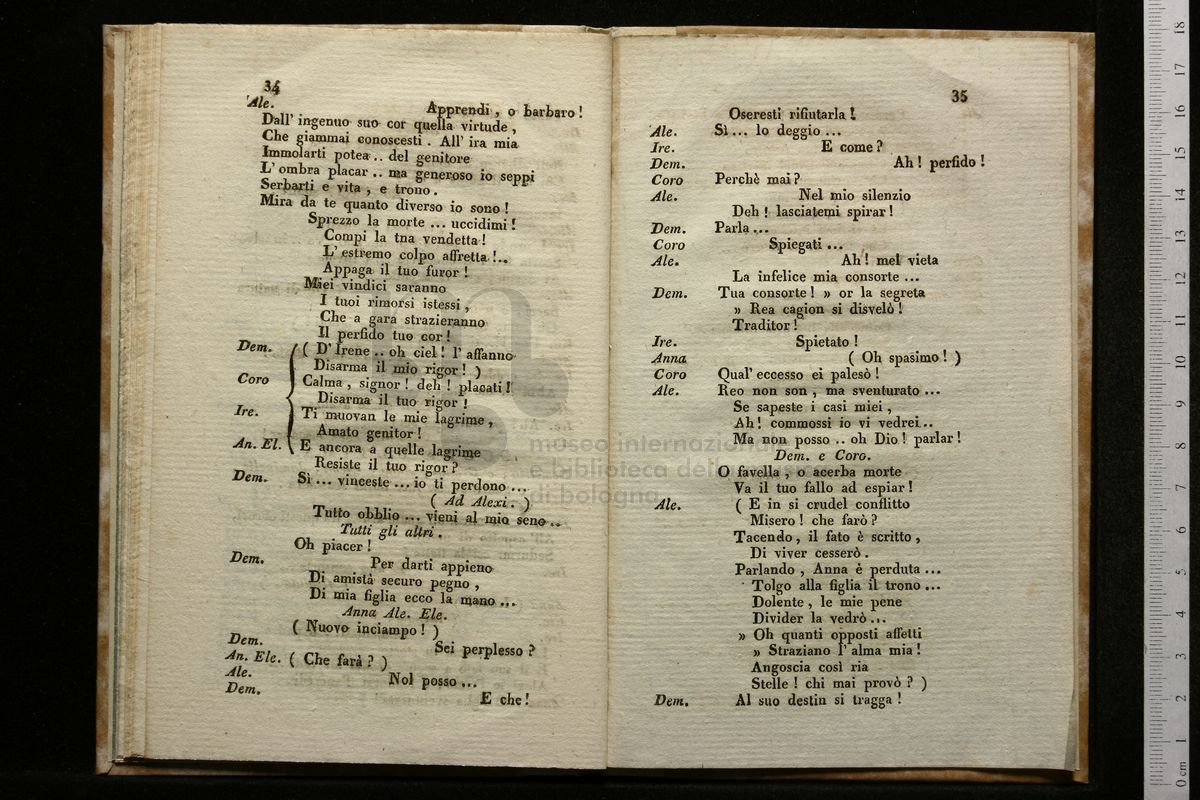 34
Ale. Apprendi, o barbaro!
Dall' ingenuo suo cor quella virtude,
Che giammai conoscesti. All' ira mia
Immolarti potea.. del genitore
L' ombra placar.. ma generoso io seppi
Serbarti e vita, e trono.
Mira da te quanto diverso io sono!
Sprezzo la morte... uccidimi!
Compi la tna vendetta!
L' estremo colpo affretta!..
Appaga il tuo furor!
Miei vindici saranno
I tuoi rimorsi istessi,
Che a gara strazieranno
Il perfido tuo cor!
Dem. ( D' Irene.. oh ciel! l' affanno
Disarma il mio rigor! )
Coro Calma, signor! deh! placati!
Disarma il tuo rigor!
Ire. Ti muovan le mie lagrime,
Amato genitor!
An. El. E ancora a quelle lagrime
Resiste il tuo rigor?
Dem. Sì... vinceste... io ti perdono...
( Ad Alexi. )
Tutto obblio... vieni al mio seno..
Tutti gli altri.
Oh piacer!
Dem. Per darti appieno
Di amistà securo pegno,
Di mia figlia ecco la mano...
Anna Ale. Ele.
( Nuovo inciampo! )
Dem. Sei perplesso?
An. Ele. ( Che farà? )
Ale. Nol posso...
Dem. E che!
35
Oseresti rifiutarla!
Ale. Sì... lo deggio...
Ire. E come?
Dem. Ah! perfido!
Coro Perchè mai?
Ale. Nel mio silenzio
Deh! lasciatemi spirar!
Dem. Parla...
Coro Spiegati...
Ale. Ah! mel vieta
La infelice mia consorte...
Dem. Tua consorte! » or la segreta
» Rea cagion si disvelò!
Traditor!
Ire. Spietato!
Anna ( Oh spasimo! )
Coro Qual' eccesso ei palesò!
Ale. Reo non son, ma sventurato...
Se sapeste i casi miei,
Ah! commossi io vi vedrei..
Ma non posso.. oh Dio! parlar!
Dem. e Coro.
O favella, o acerba morte
Va il tuo fallo ad espiar!
Ale. ( E in si crudel conflitto
Misero! che farò?
Tacendo, il fato è scritto,
Di viver cesserò.
Parlando, Anna è perduta...
Tolgo alla figlia il trono...
Dolente, le mie pene
Divider la vedrò...
» Oh quanti opposti affetti
» Straziano l' alma mia!
Angoscia così ria
Stelle! chi mai provò? )
Dem. Al suo destin si tragga!
museo internazionale
e biblioteca della
di bologna
0 cm 1 2 3 4 5 6 7 8 9 10 11 12 13 14 15 16 17 18